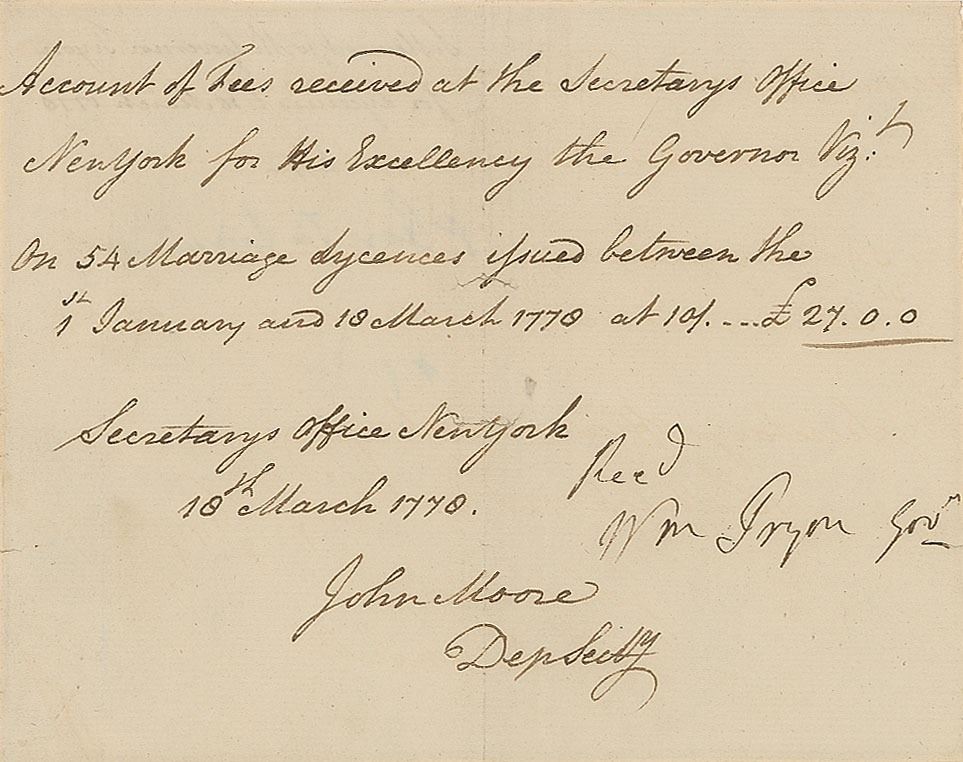 Account of Fees received at the Secretarys Office
New York for His Excellency the Governor Viz.t
On 54 Marriage Lycences issued between the
1st January and 18 March 1778 at 10/. ... £ 27. 0. 0
Secretarys Office New York
18th March 1778.
Recd
Wm Tryon Govr
John Moore
Dep Secty